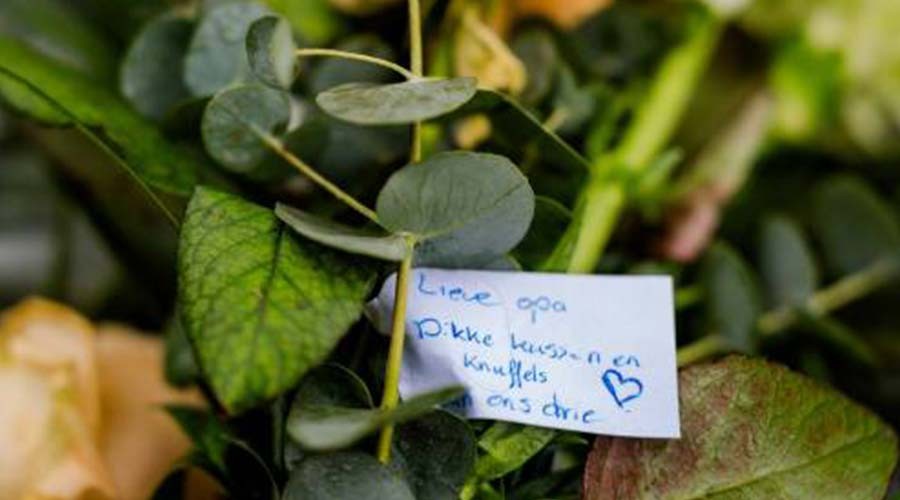 Lieve opa
Dikke kussen en
Knuffels
ons drie